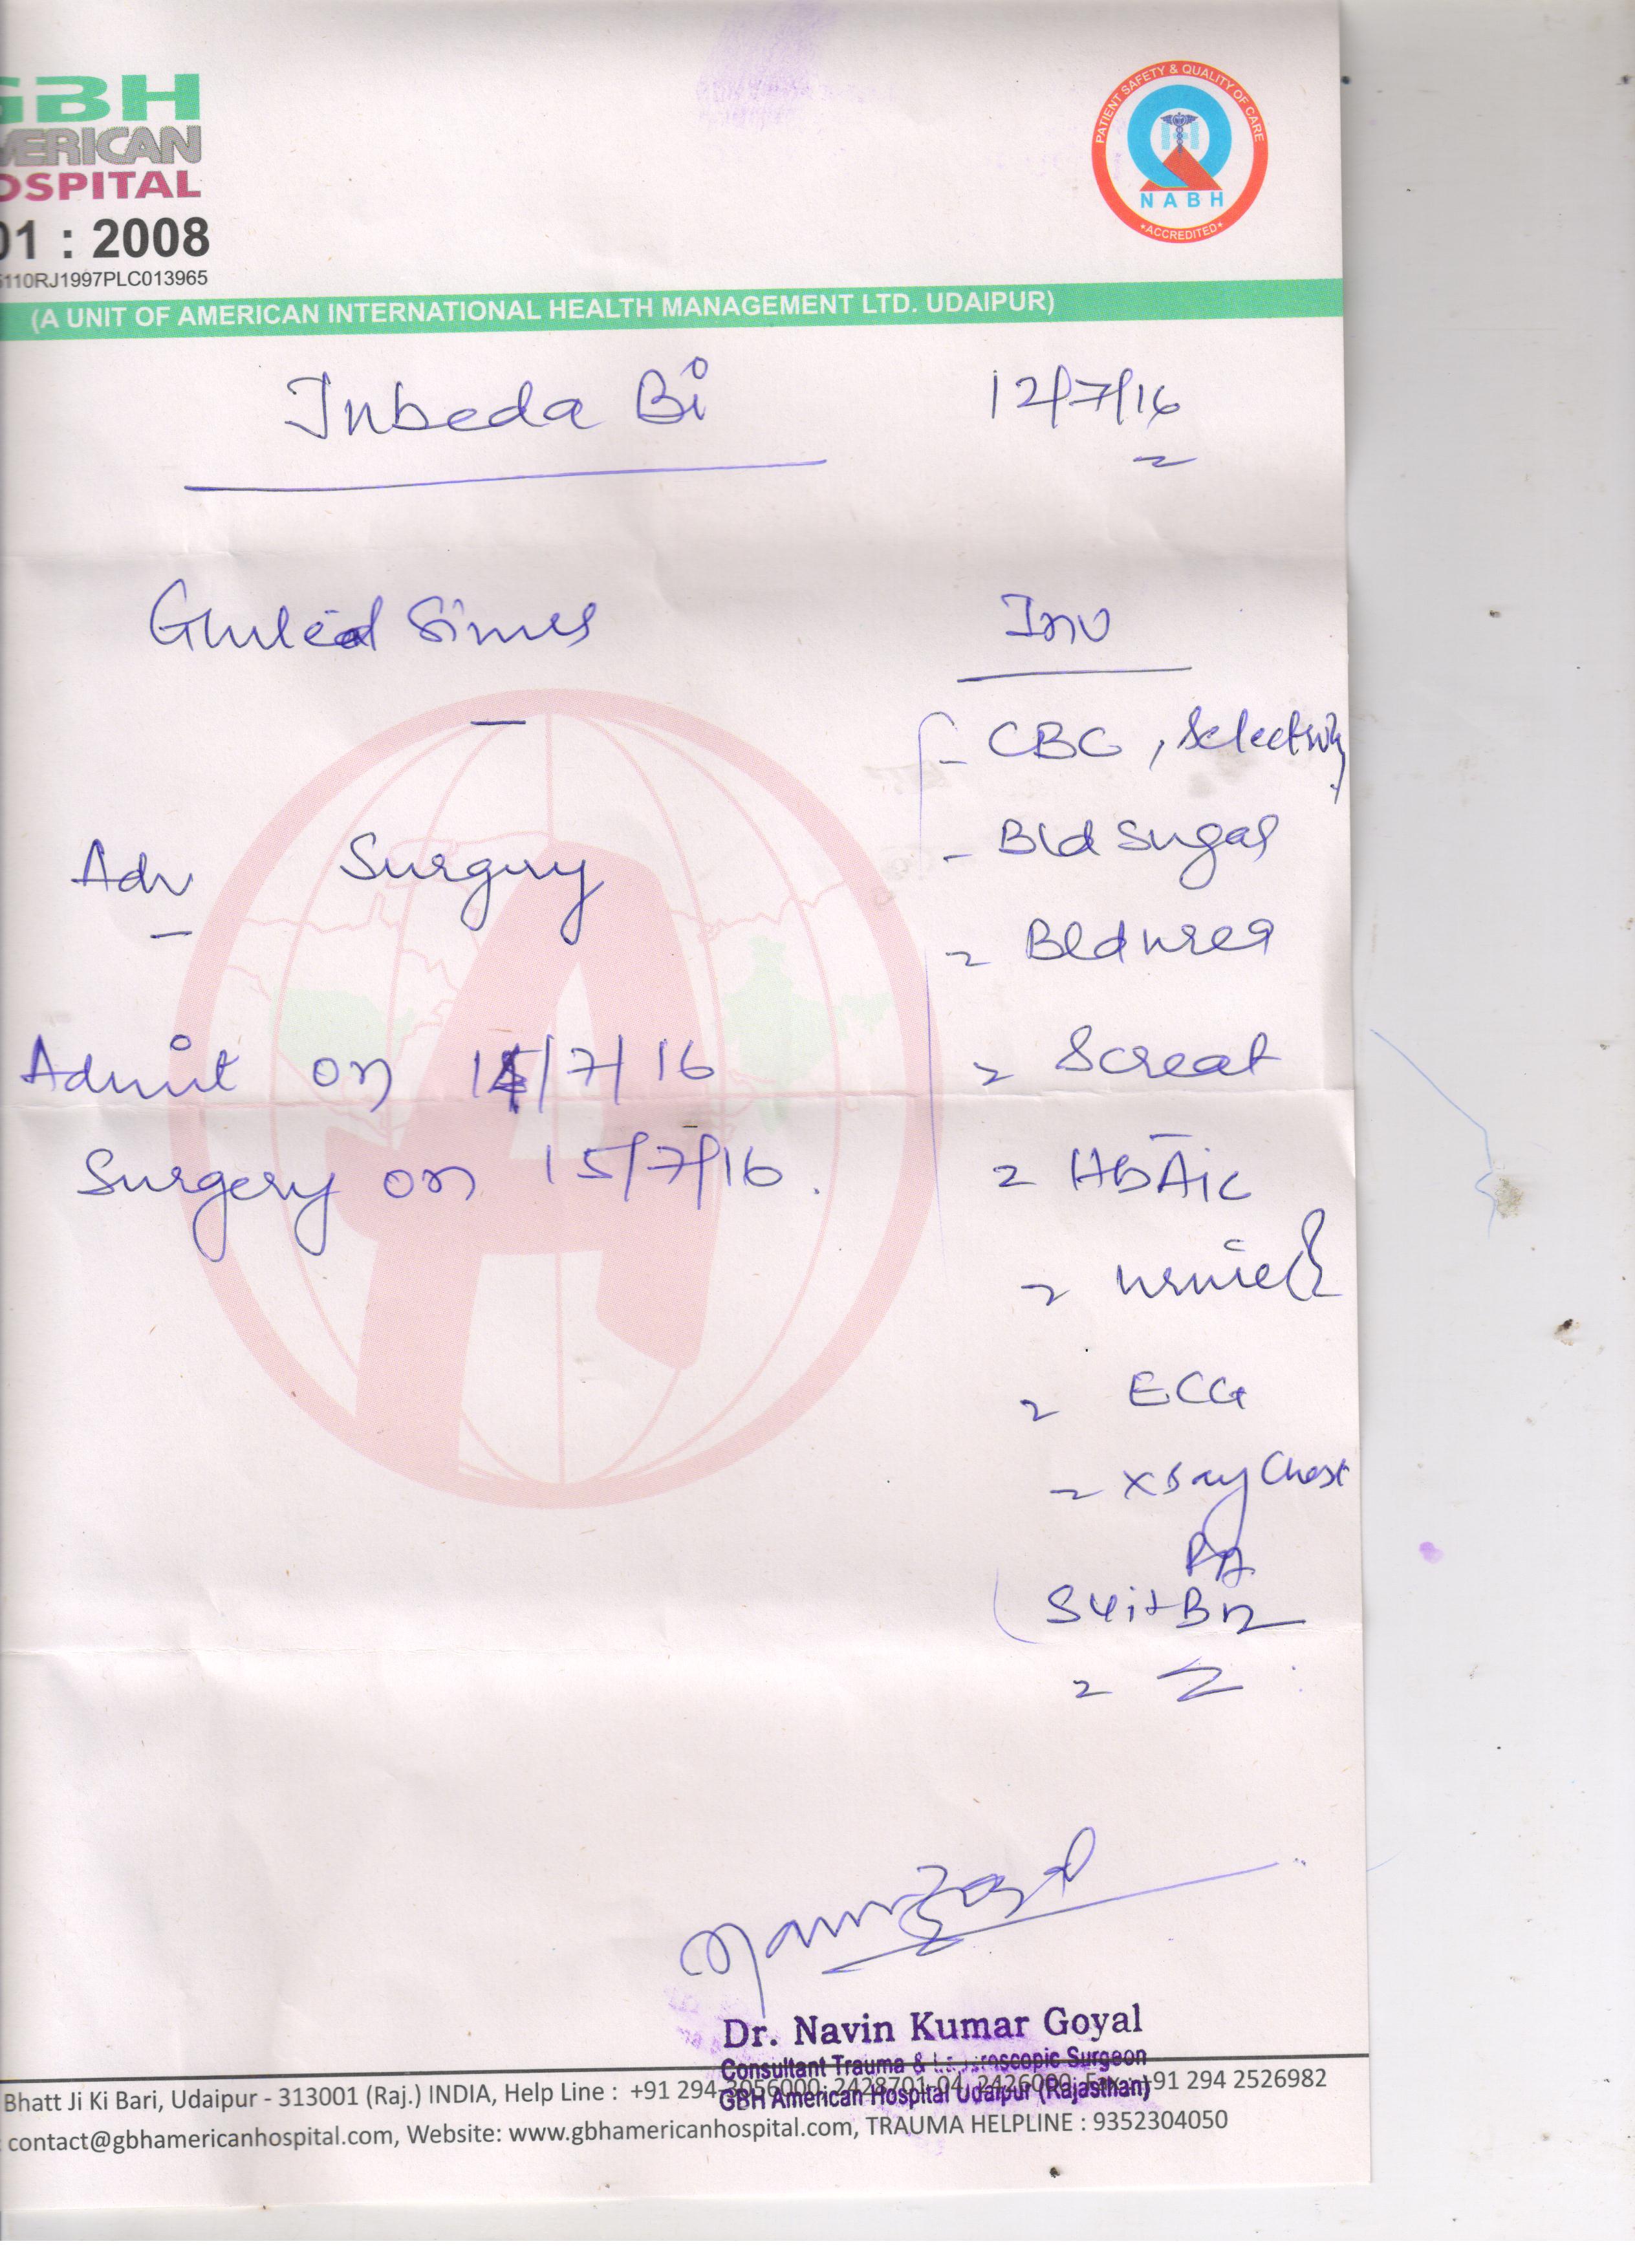 GBH
AMERICAN
HOSPITAL
01 : 2008
110RJ1997PLC013965
PATIENT SAFETY & QUALITY OF CARE
NABH
ACCREDITED
(A UNIT OF AMERICAN INTERNATIONAL HEALTH MANAGEMENT LTD. UDAIPUR)
Inbeda Bi 12/7/16
Gluteal Sinus
Inv
- CBC,
- Bld Sugar
Adv Surgery
- Bld urea
- Screat
Admit on 14/7/16
- HbA1c
Surgery on 15/7/16.
- urine
- ECG
- Xray Chest
PA
Dr. Navin Kumar Goyal
Consultant Trauma & Laproscopic Surgeon
GBH American Hospital Udaipur (Rajasthan)
Bhatt Ji Ki Bari, Udaipur - 313001 (Raj.) INDIA, Help Line : +91 294-3056000, 2428701-04, 2426000, Fax : +91 294 2526982
contact@gbhamericanhospital.com, Website: www.gbhamericanhospital.com, TRAUMA HELPLINE : 9352304050